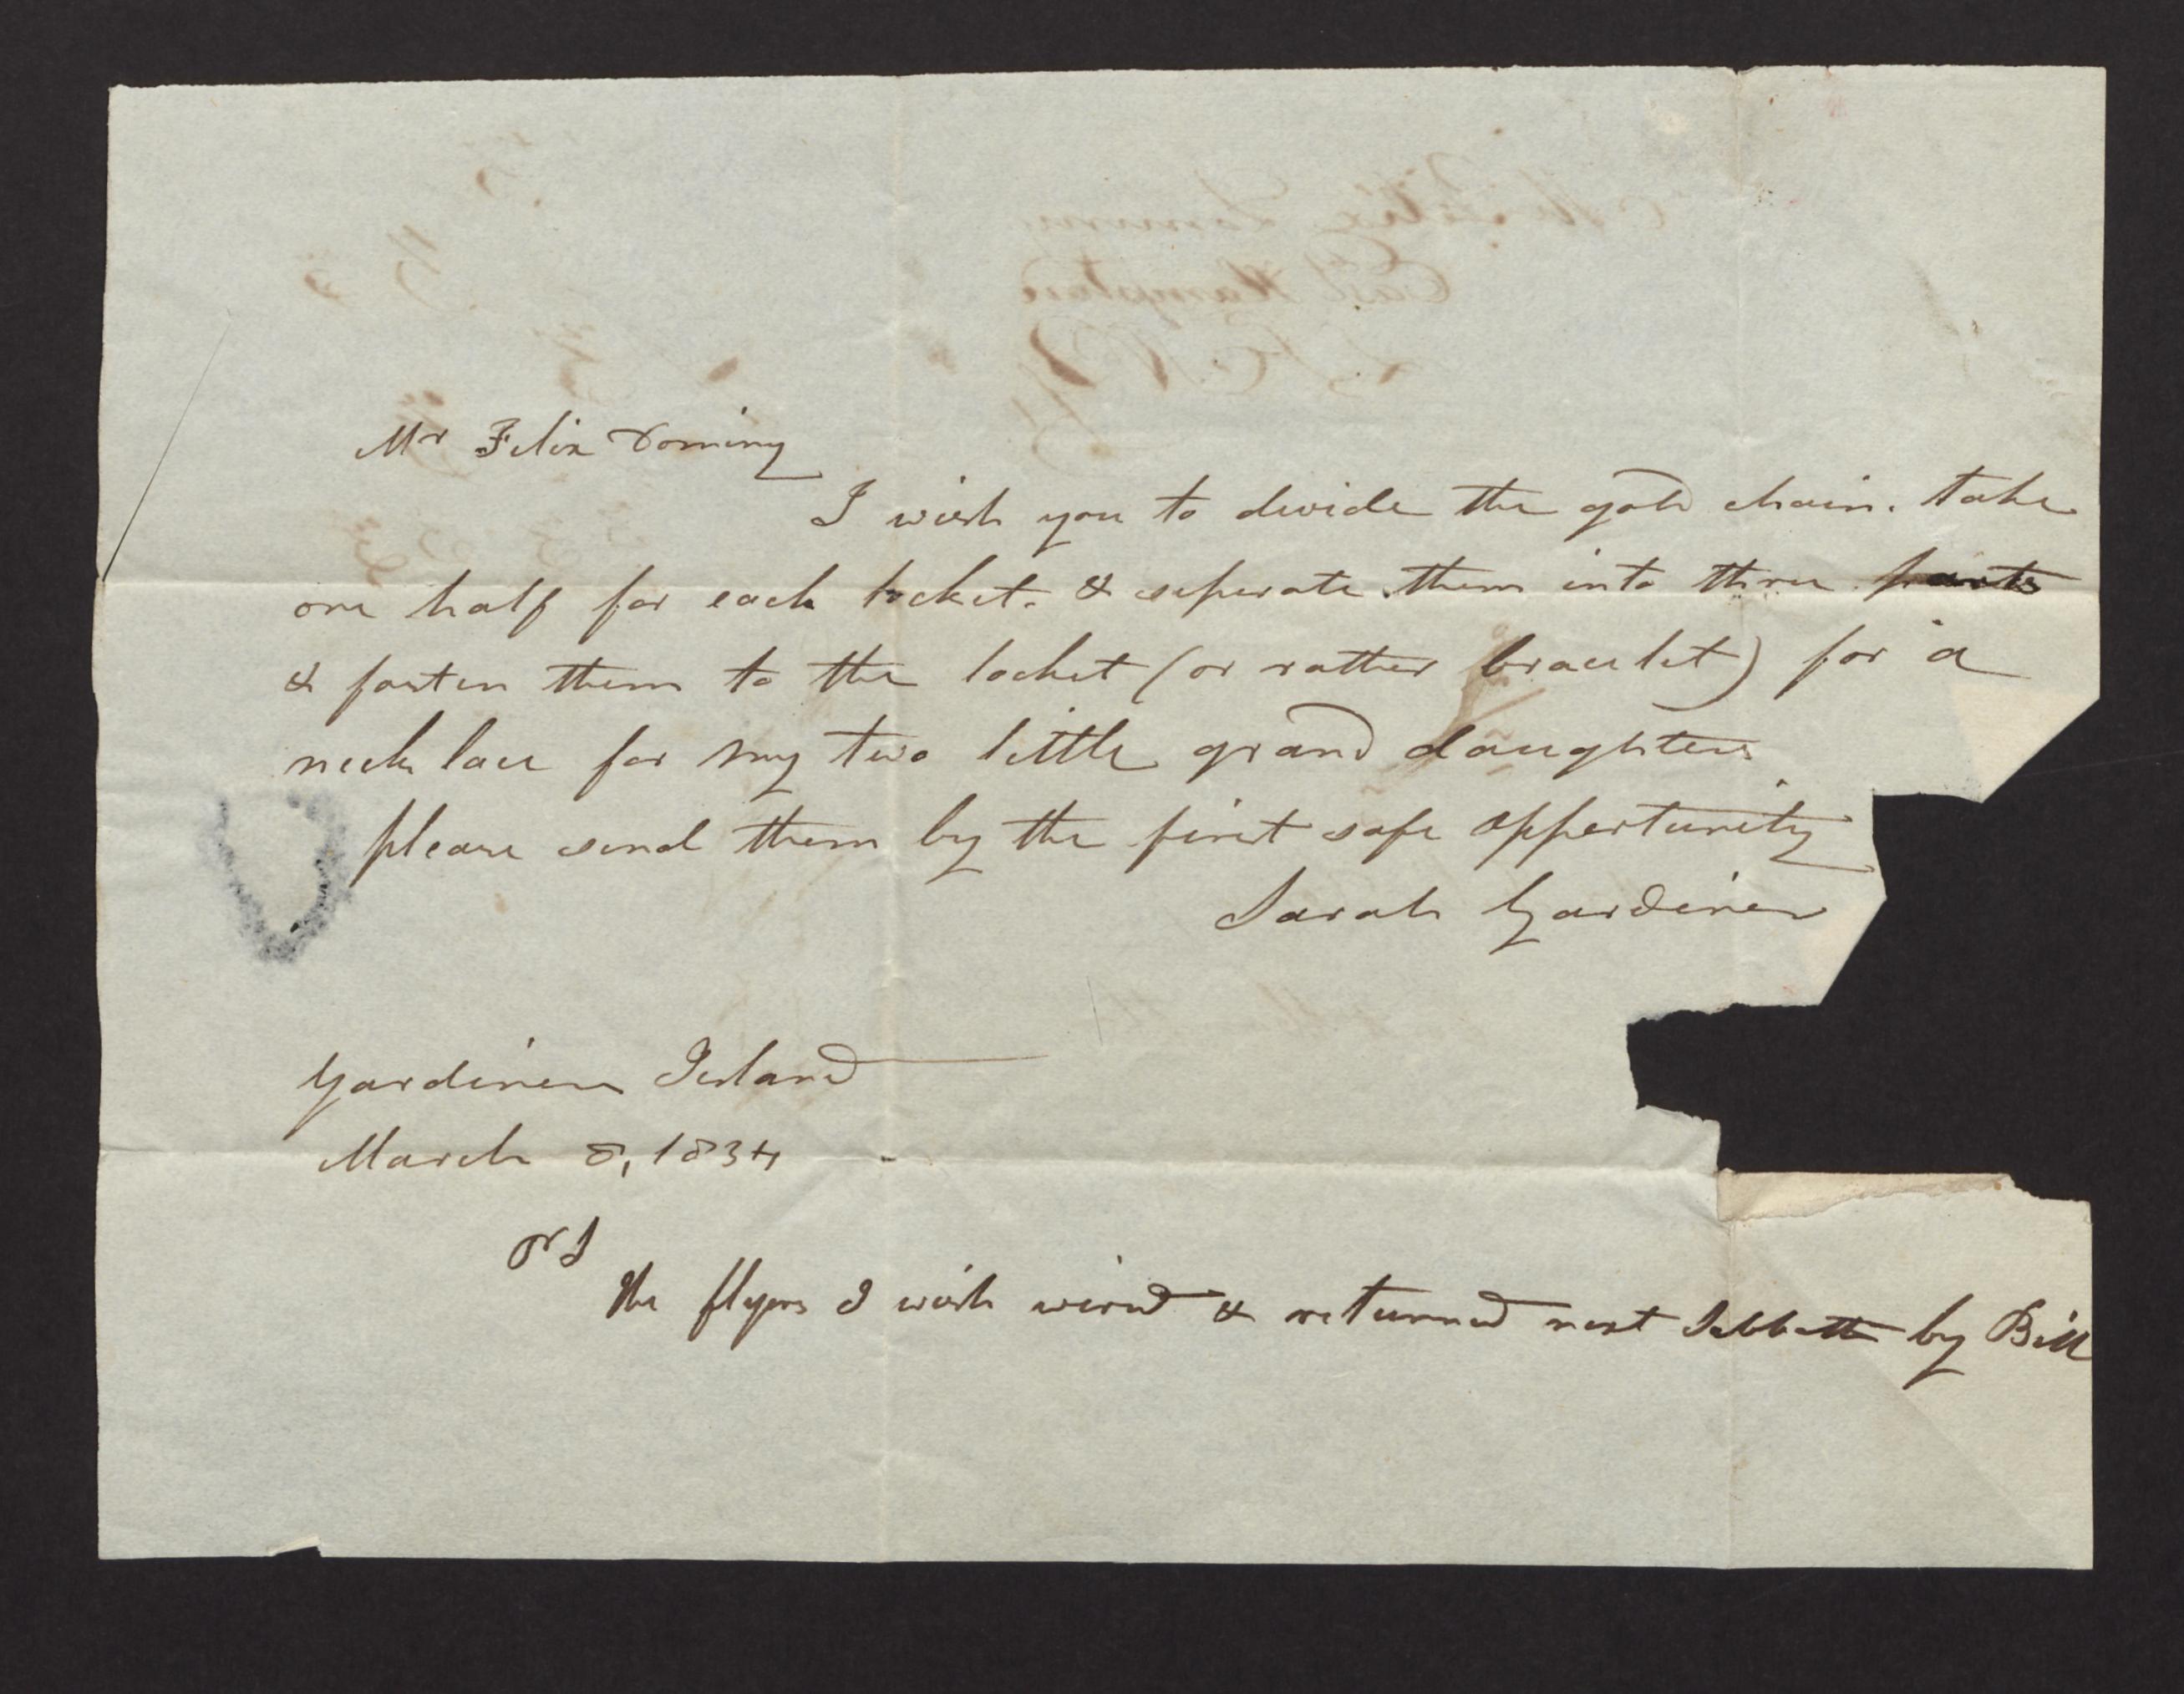 Mr Felix Dominy
I wish you to divide the gold chain. take
one half for each locket. & seperate them into three parts
& fasten them to the locket (or rather bracelet) for a
neck lace for my two little grand daughters
please send them by the first safe oppertunity
Sarah Gardiner
Gardiners Island
March 8, 1834
PS
the flyers I wish wired & returned next Sabbath by Bill